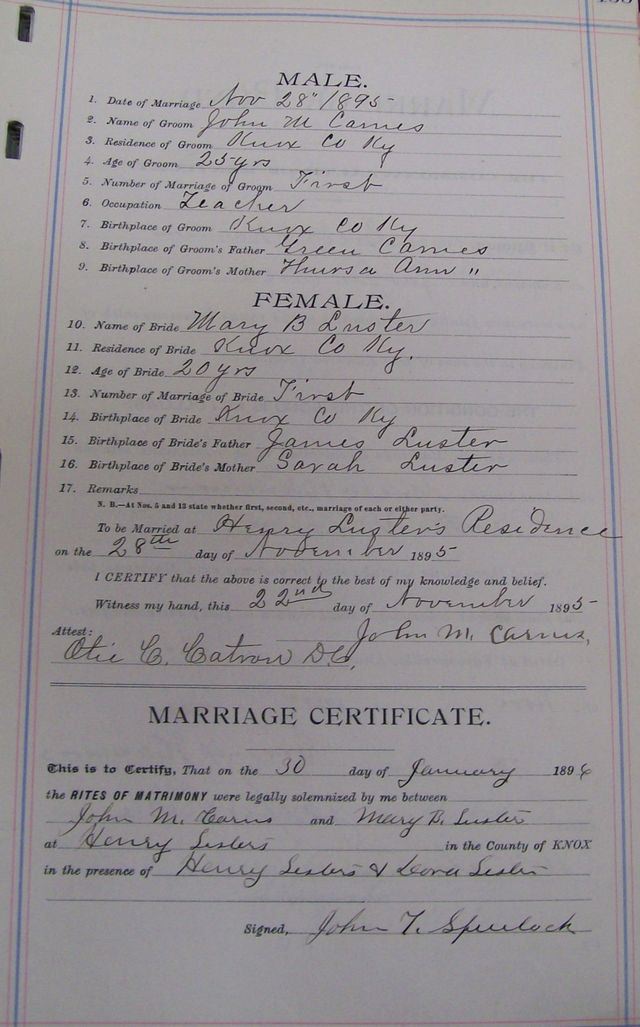 MALE.
1. Date of Marriage Nov 28" 1895
2. Name of Groom John M Carnes
3. Residence of Groom Knox Co Ky
4. Age of Groom 25 yrs
5. Number of Marriage of Groom First
6. Occupation Teacher
7. Birthplace of Groom Knox Co Ky
8. Birthplace of Groom's Father Green Carnes
9. Birthplace of Groom's Mother Thursa Ann "
FEMALE.
10. Name of Bride Mary B Luster
11. Residence of Bride Knox Co Ky.
12. Age of Bride 20 yrs
13. Number of Marriage of Bride First
14. Birthplace of Bride Knox Co Ky
15. Birthplace of Bride's Father James Luster
16. Birthplace of Bride's Mother Sarah Luster
17. Remarks
N. B.—At Nos. 5 and 13 state whether first, second, etc., marriage of each or either party.
To be Married at Henry Luster's Residence
on the 28th day of November 1895
I CERTIFY that the above is correct to the best of my knowledge and belief.
Witness my hand, this 22nd day of November 1895
John M. Carnes,
Attest:
Otie C. Catron D.C.
MARRIAGE CERTIFICATE.
This is to Certify, That on the 30 day of January 1896
the RITES OF MATRIMONY were legally solemnized by me between
John M. Carns and Mary B. Luster
at Henry Lesters in the County of KNOX
in the presence of Henry Lesters & Lester
Signed, John T. Spurlock